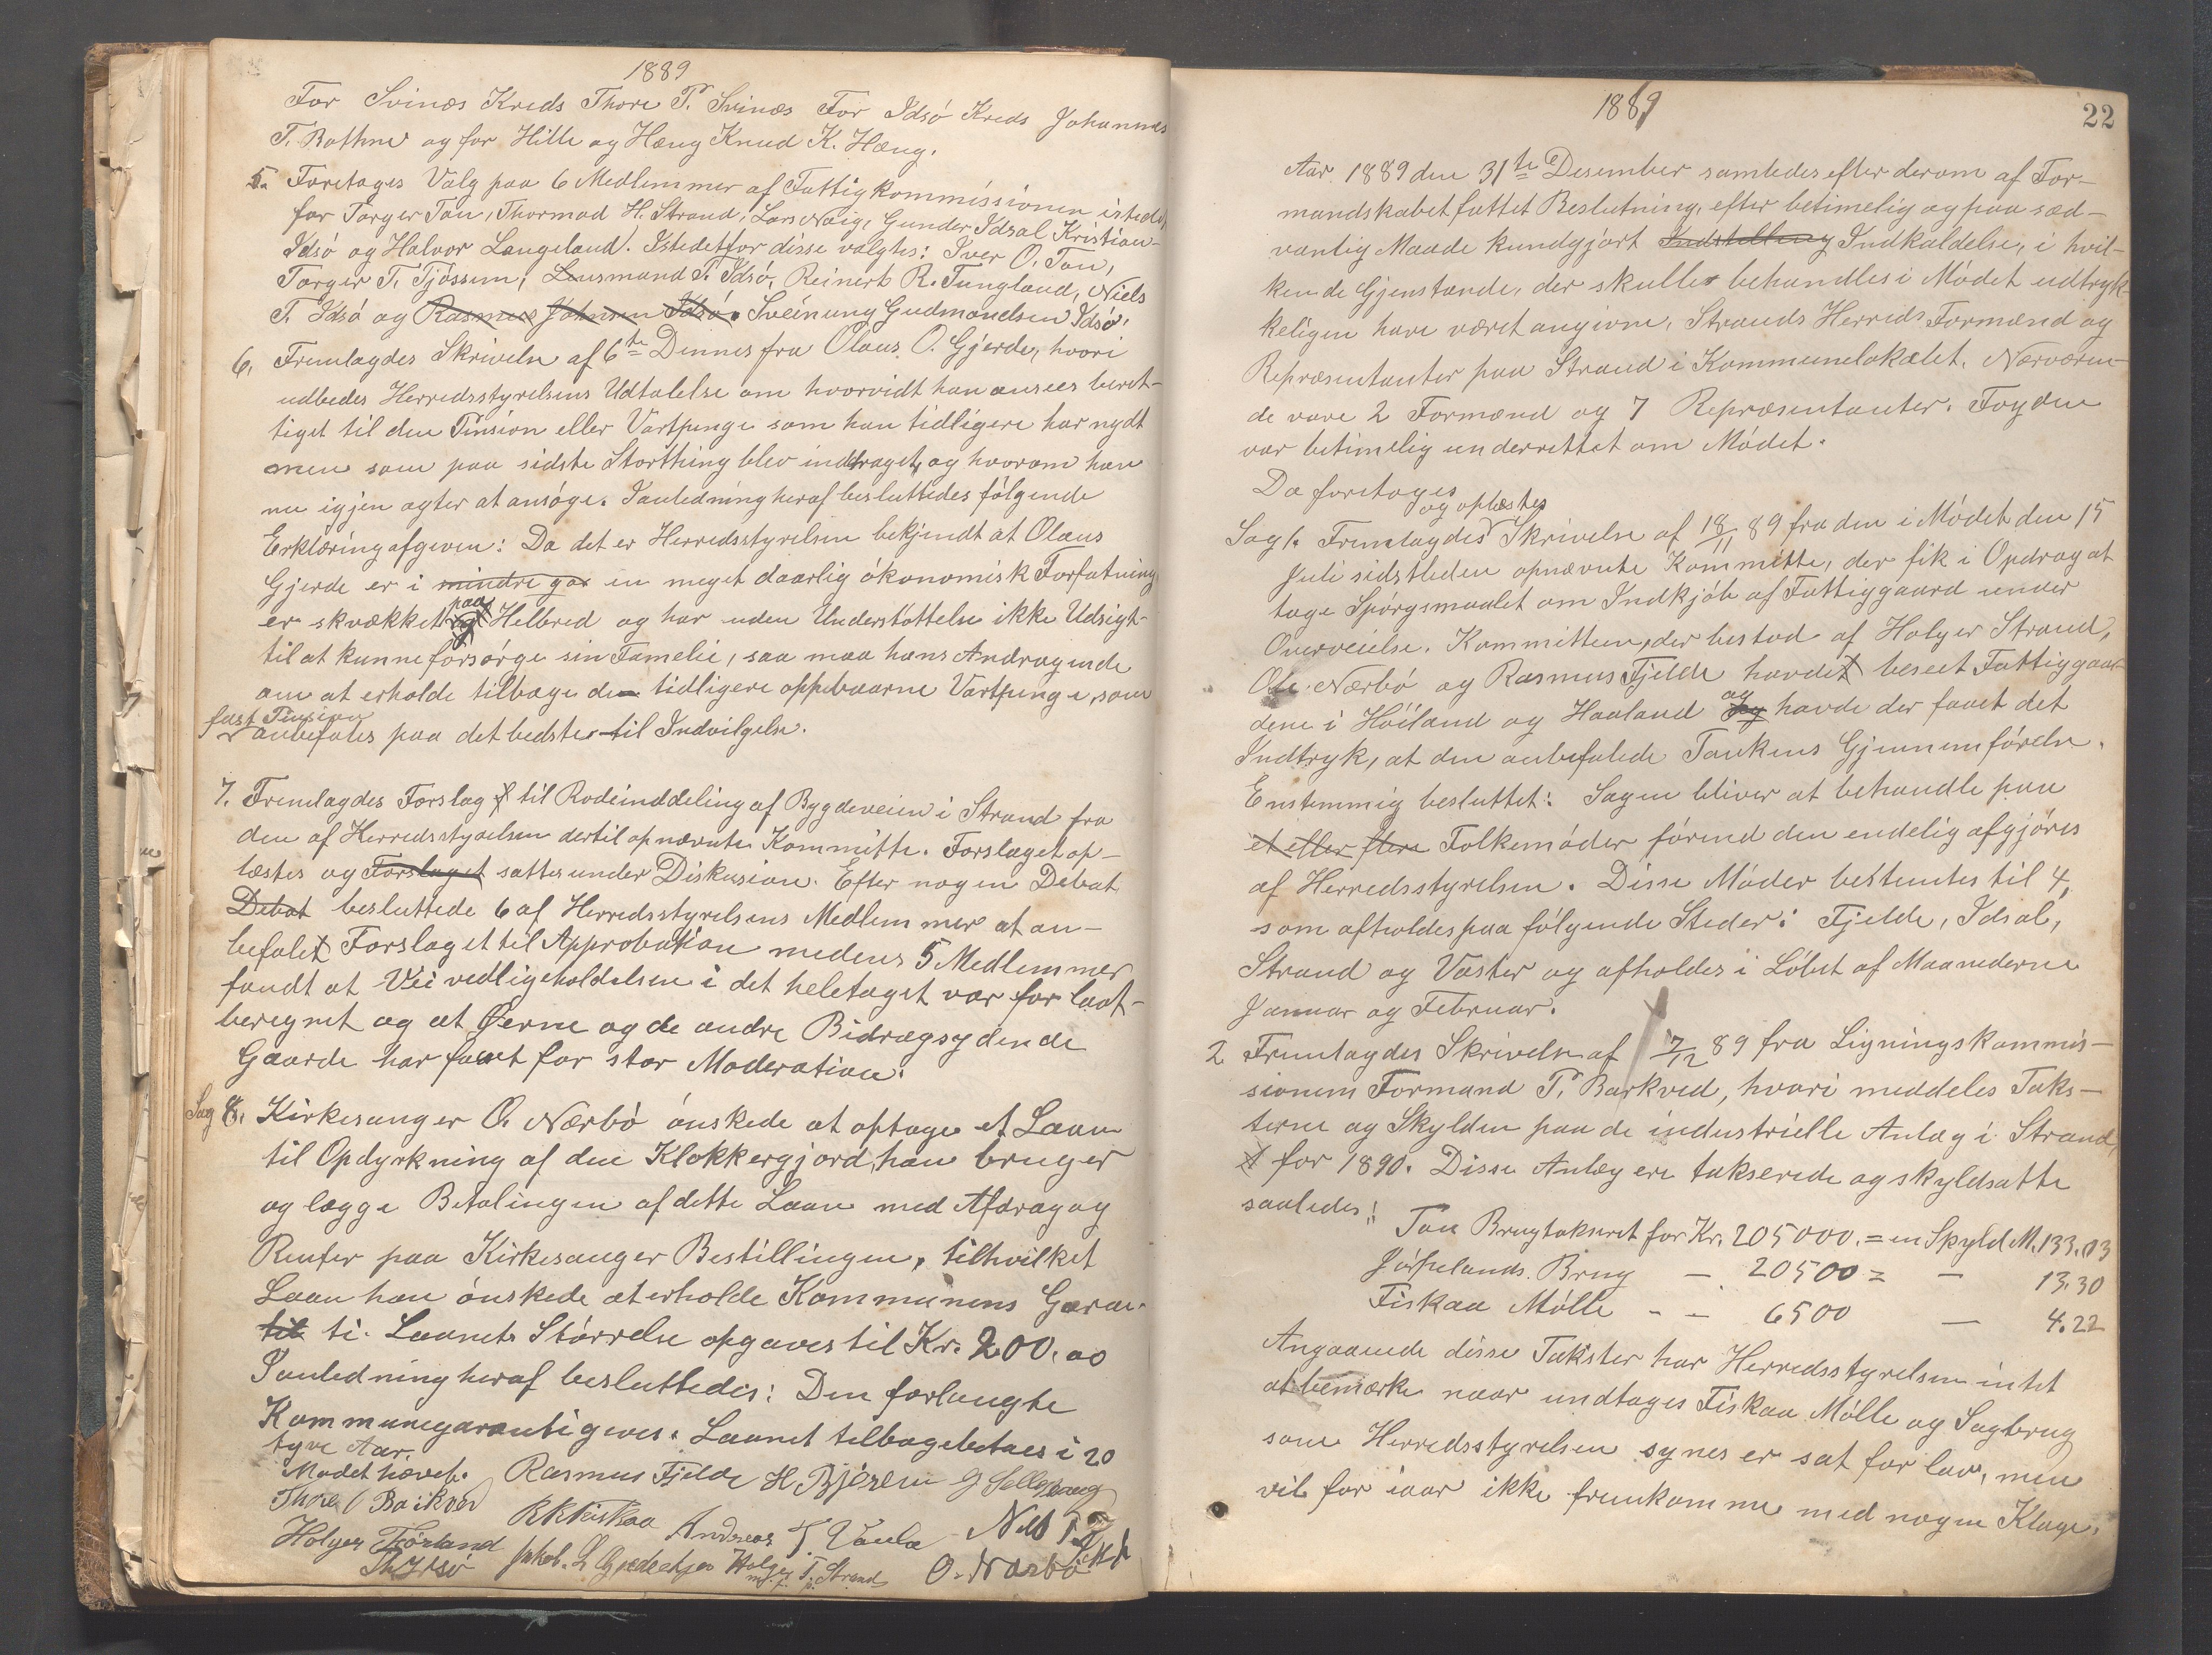 1889
For Svinæs Kreds Thore P. Svinæs For Idsö Kreds Johannes
T. Bathne og for Hille og Hæng Knud K. Hæng.
5. Foretages Valg paa 6 Medlemmer af Fattigkommissionen istedet
for Torger Tou, Thormod H. Strand, Lars Nøig, Gunder Idsal Kristian
Idsö og Halvor Langeland. Istedetfor disse valgtes: Iver O. Tou,
Torger T. Tjössem, Lensmand T. Idsö, Reinert R. Tungland, Niels
T. Idsö og Rasmus Johnsen Idsö. Sveinung Gudmondsen Idsö.
6. Fremlagdes Skrivelse af 6te Dennes fra Olaus O. Gjerde, hvori
udbedes Herredsstyrelsens Udtalelse om hvorvidt han ansees beret-
tiget til den Pension eller Vartpenge som han tidligere har nydt
men som paa sidste Storthing blev inddraget, og hvorom han
nu igjen agter at ansöge. Ianledning heraf besluttedes fölgende
Erklæring afgiven: Da det er Herredsstyrelsen bekjendt at Olaus
Gjerde er i mindre go en meget daarlig ökonomisk Forfatning
er skvækket paa Helbred og har uden Understöttelse ikke Udsigt
til at kunne forsörge sin Famelie, saa maa hans Andragende
om at erholde tilbage den tidligere oppebaarne Vartpenge, som
fast Pension
anbefales paa det bedste til Indvilgelse.
7. Fremlagdes Forslag til Rodeinddeling af Bygdeveien i Strand fra
den af Herredsstyrelsen dertil opnævnte Kommitte. Forslaget op-
læstes og Forslaget sattes under Diskusion. Efter nogen Debat
Debat besluttede 6 af Herredsstyrelsens Medlemmer at an-
befale Forslaget til Approbation medens 5 Medlemmer
fandt at Veivedligeholdelsen i det heletaget var for lavt
beregnet og at Öerne og de andre Bidragsydende
Gaarde har faaet for stor Moderation.
Sag 8. Kirkesanger O. Nærbö önskede at optage et Laan
til Opdyrkning af den Klokkergjord, han bruger
og lægge Betalingen af dette Laan med Afdrag og
Renter paa Kirkesanger Bestillingen, tilhvilket
Laan han önskede at erholde Kommunens Garan-
til ti. Laanets Störrelse opgaves til Kr. 200.00
Ianledning heraf besluttedes: Den forlangte
Kommunegaranti gives. Laanet tilbagebetales i 20
tyve Aar.
Mødet hævet. Rasmus Fjelde H. Bjøreim
Thore Barkved R K Fiskaa Andreas T. Vaula Nils
Holger Tjörland Jakob. L Holger T. Strand O. Nærbö
Th Idsö
1889
22
Aar 1889 den 31te Desember samledes efter derom af For-
mandskabet fattet Beslutning, efter betimelig og paa sæd-
vanlig Maade kundgjort Indstilling Indkaldelse, i hvil-
ken de Gjenstande, der skulle behandles i Mödet udtryk-
keligen have været angivne, Strands Herreds Formænd og
Repræsentanter paa Strand i Kommunelokalet. Nærværen-
de vare 2 Formænd og 7 Repræsentanter. Fogden
var betimelig underrettet om Mödet.
Da foretoges
og oplæstes
Sag 1. Fremlagdes Skrivelse af 18/11 89 fra den i Mödet den 15
Juli sidstleden opnævnte Kommitte, der fik i Opdrag at
tage Spörgsmaalet om Indkjöb af Fattiggaard under
Overveielse. Kommitteen, der bestod af Holger Strand,
Ole Nærbö og Rasmus Fjelde havde beseet Fattiggaar-
dene i Höiland og Haaland og havde der faaet det
Indtryk, at den anbefalede Tankens Gjennemförelse.
Enstemmig besluttet: Sagen bliver at behandle paa
et eller flere Folkemöder förend den endelig afgjöres
af Herredsstyrelsen. Disse Möder bestemtes til 4,
som afholdes paa fölgende Steder: Fjelde, Idsal,
Strand og Vaster og afholdes i Löbet af Maanederne
Januar og Februar.
2 Fremlagdes Skrivelse af 7/12 89 fra Ligningskommis-
sionens Formand T. Barkved, hvori meddeles Taks-
terne og Skylden paa de industrielle Anlæg i Strand,
for 1890. Disse Anlæg ere takserede og skyldsatte
saaledes:
Tou Brug takseret for Kr. 205000. = en Skyld M. 133.03
Jörpelands Brug — 20500 = — 13.30
Fiskaa Mölle - — 6500 — 4.22
Angaaende disse Takster har Herredsstyrelsen intet
at bemærke naar undtages Fiskaa Mölle og Sagbrug
som Herredsstyrelsen synes er sat for lav, men
vil for iaar ikke fremkomme med nogen Klage.